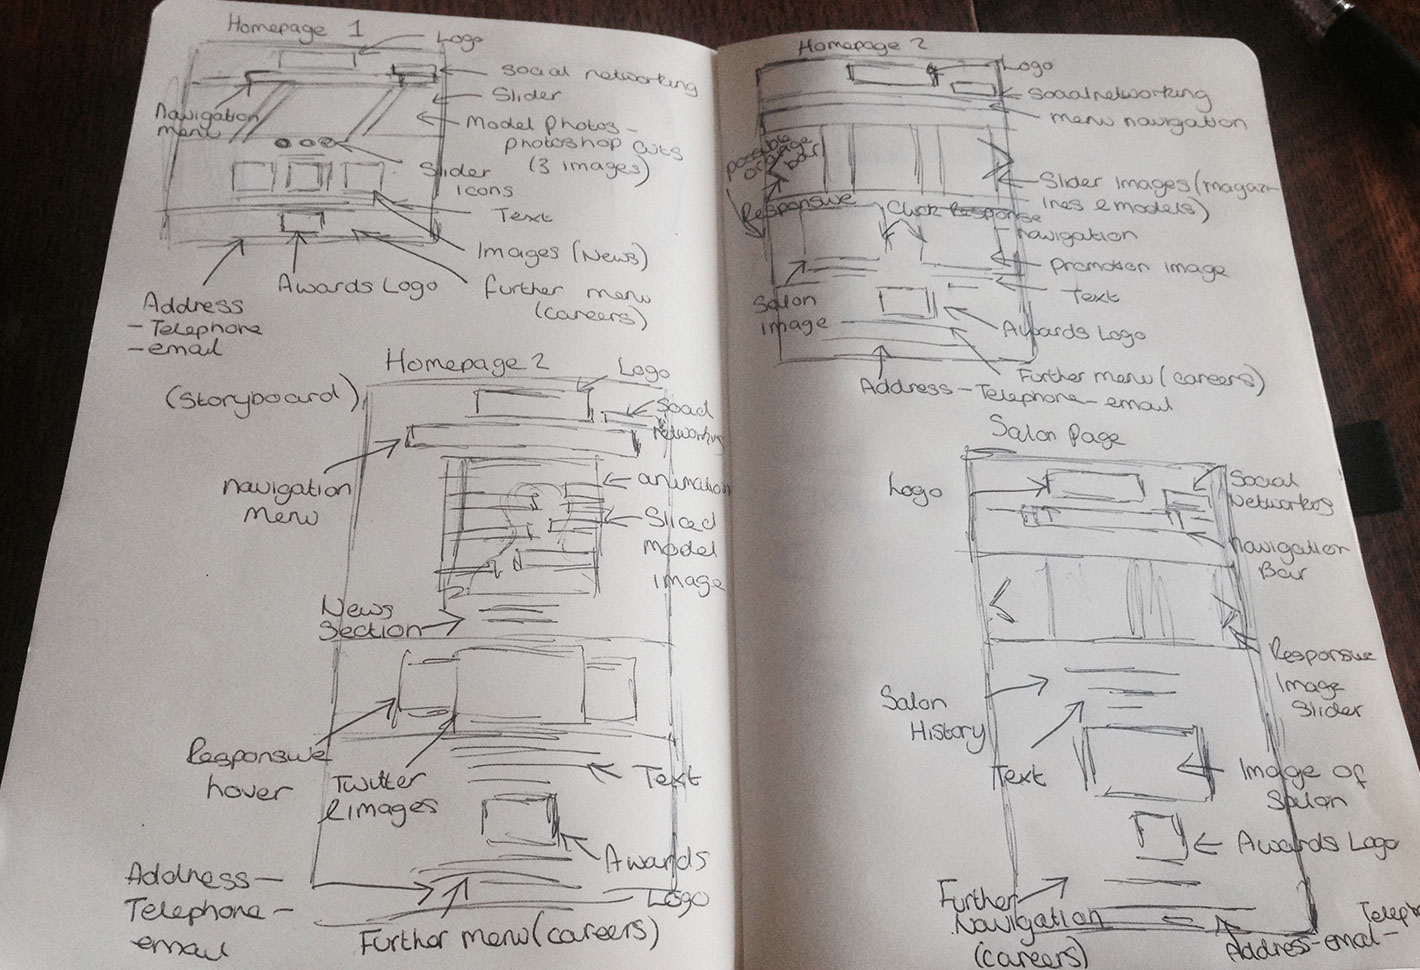 Homepage 1
Logo
Social networking
Slider
Navigation
menu
Model Photos -
photoshop cuts
(3 images)
Slider
icons
Text
Images (News)
Awards Logo
further menu
(careers)
Address
- Telephone
- email
Homepage 2
(Storyboard)
Logo
Social
Networking
navigation
Menu
animation
Sliced
model
image
News
Section
Responsive
hover
Twitter
& images
Text
Awards
Logo
Address -
Telephone -
email
Further menu (careers)
Homepage 2
Logo
Social networking
menu navigation
possible
orange
bar
Slider Images (magaz-
ines & models)
Responsive
Click Response
- navigation
promotion image
Text
Salon
image
Awards Logo
Further menu (careers)
Address - Telephone - email
Salon Page
Logo
Social
Networking
navigation
Bar
Responsive
Image
Slider
Salon
History
Text
Image of
Salon
Awards Logo
Further
Navigation
(careers)
Address - email -